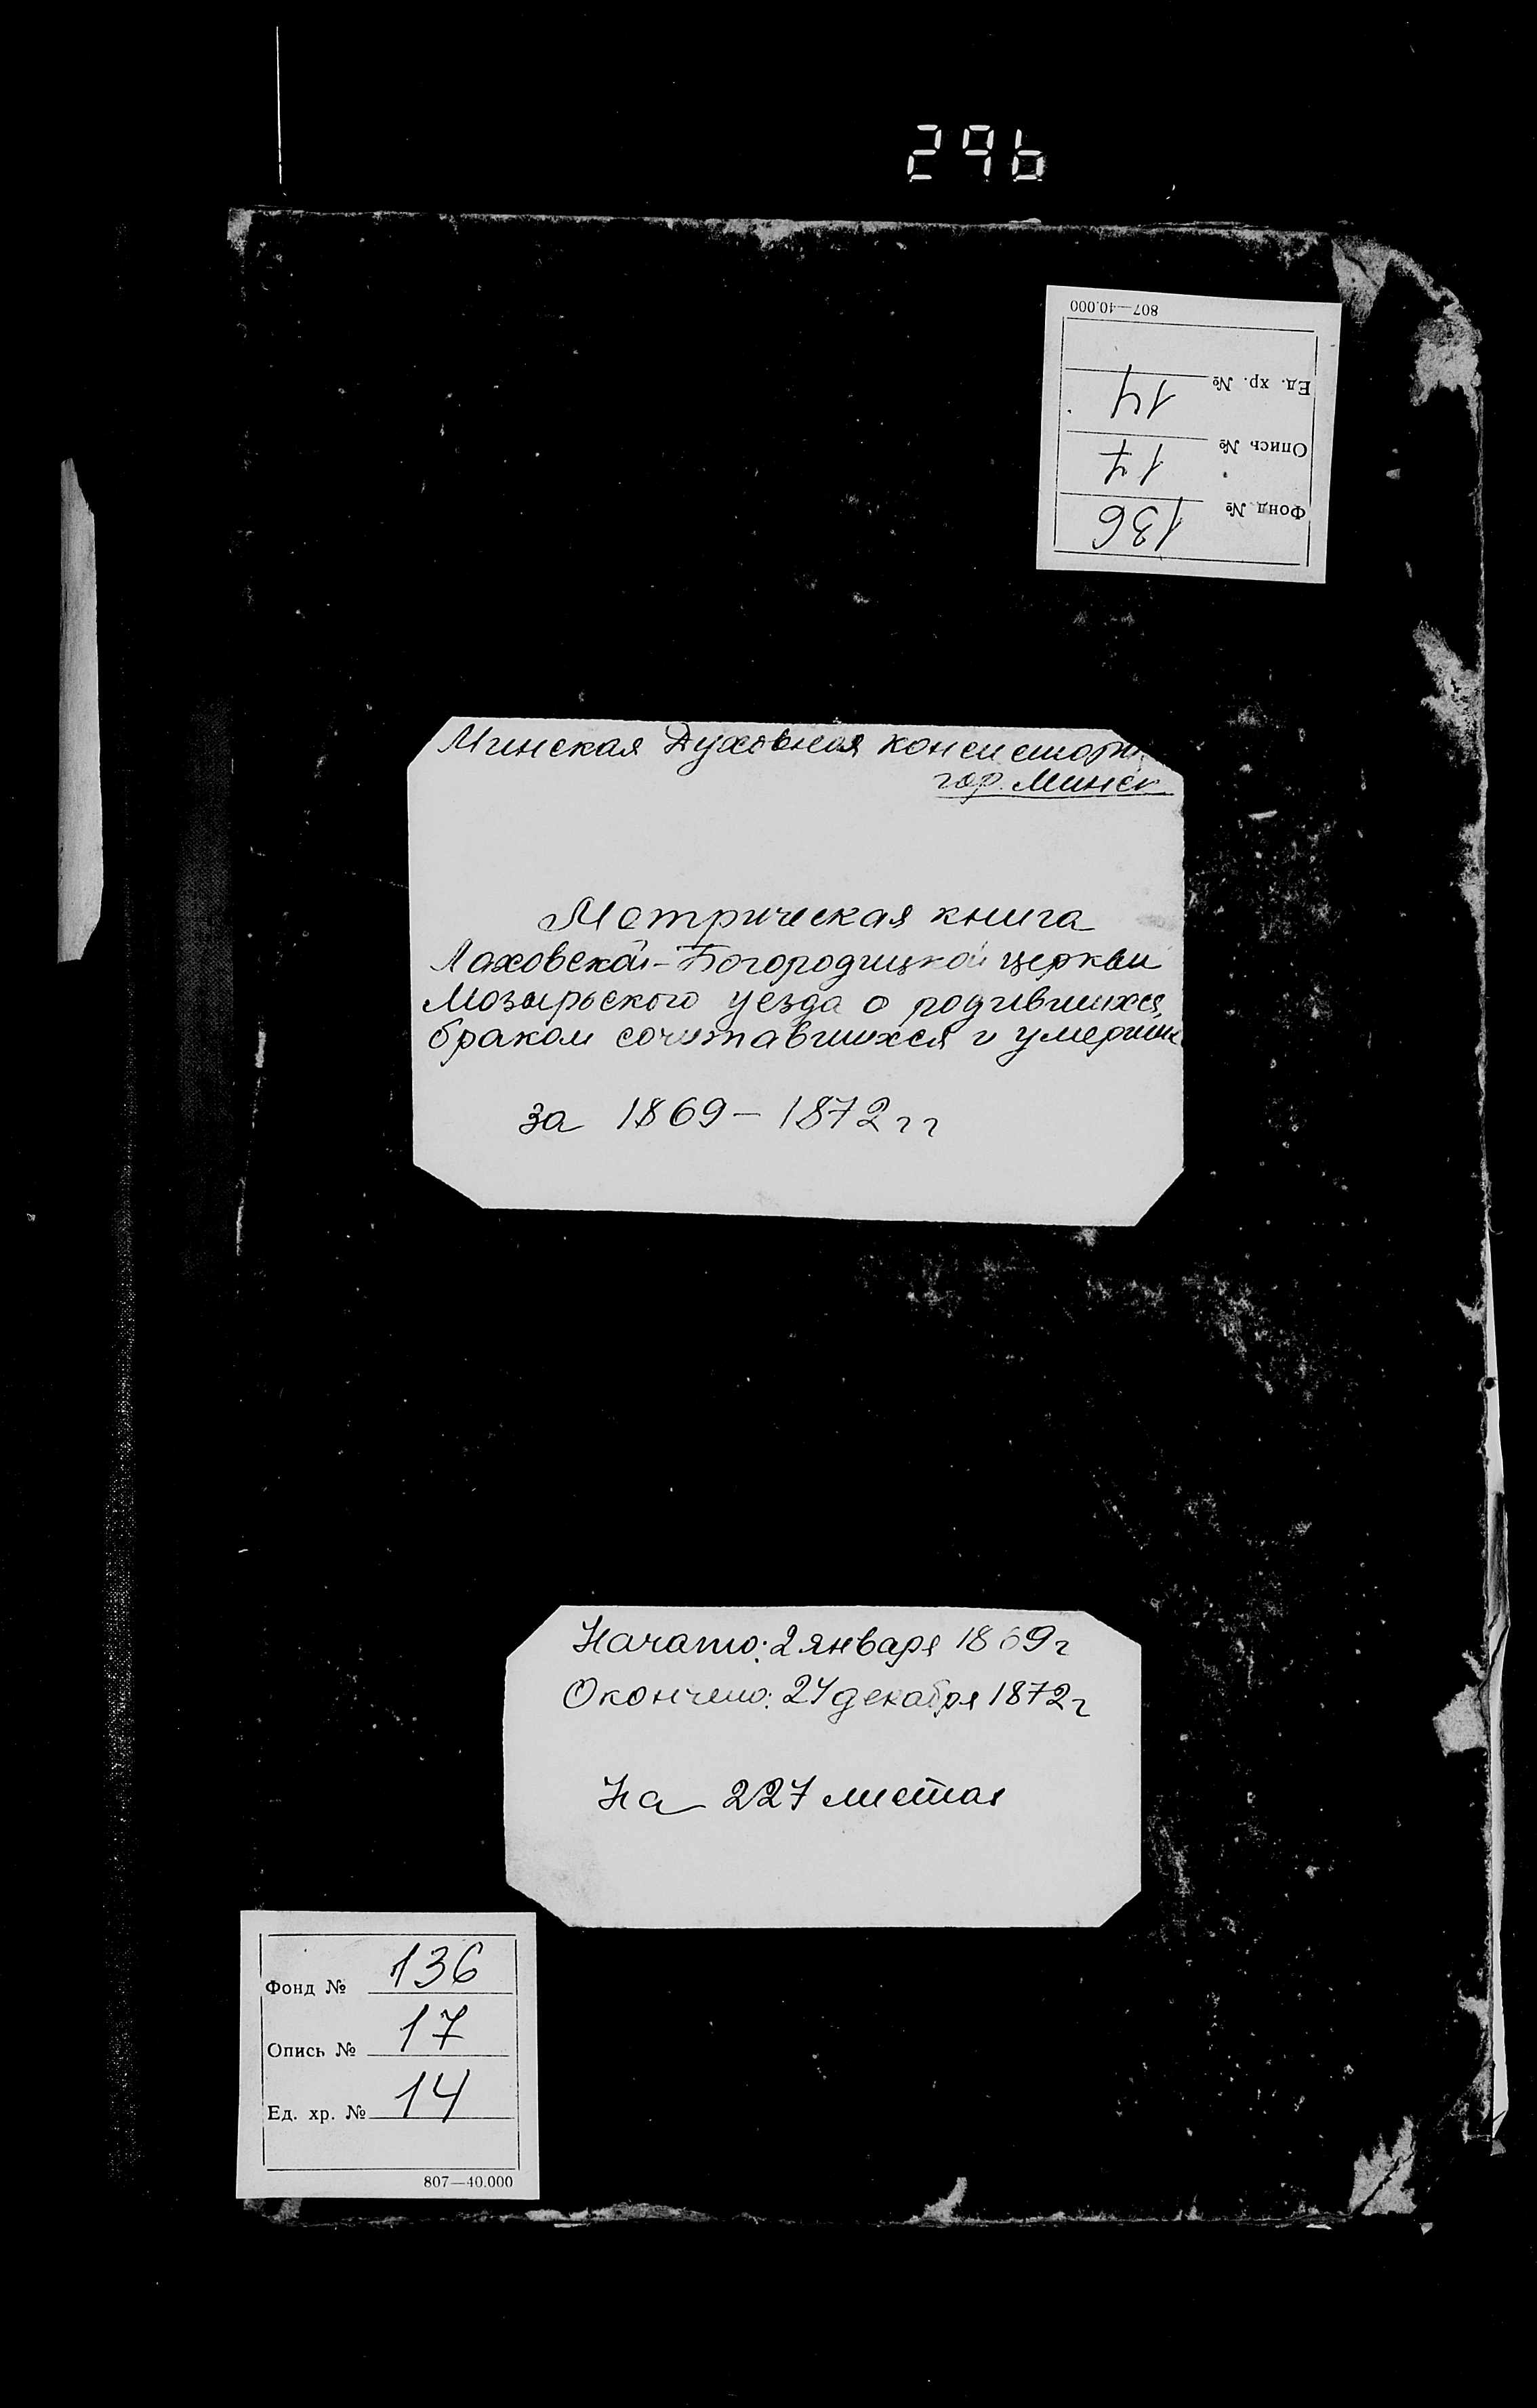 296
807—40.000
Ед. хр. № 14
Опись № 17
Фонд № 136
Минская Духовная консистори
гор. Минск
Метрическая книга
Лаховской-Богородицкой церкви
Мозырьского уезда о родившихся,
браком сочитавшихся и умерших
за 1869 – 1872 гг
Начато: 2 января 1869 г
Окончено: 24 декабря 1872 г
На 227 листах
Фонд № 136
Опись № 17
Ед. хр. № 14
807—40.000